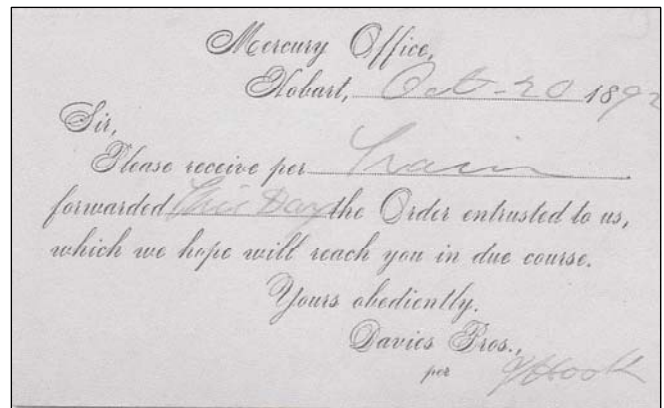 Mercury Office,
Hobart, Oct 20 1892
Sir,
Please receive per Train
forwarded This Day the Order entrusted to us,
which we hope will reach you in due course.
Yours obediently.
Davies Bros.,
per